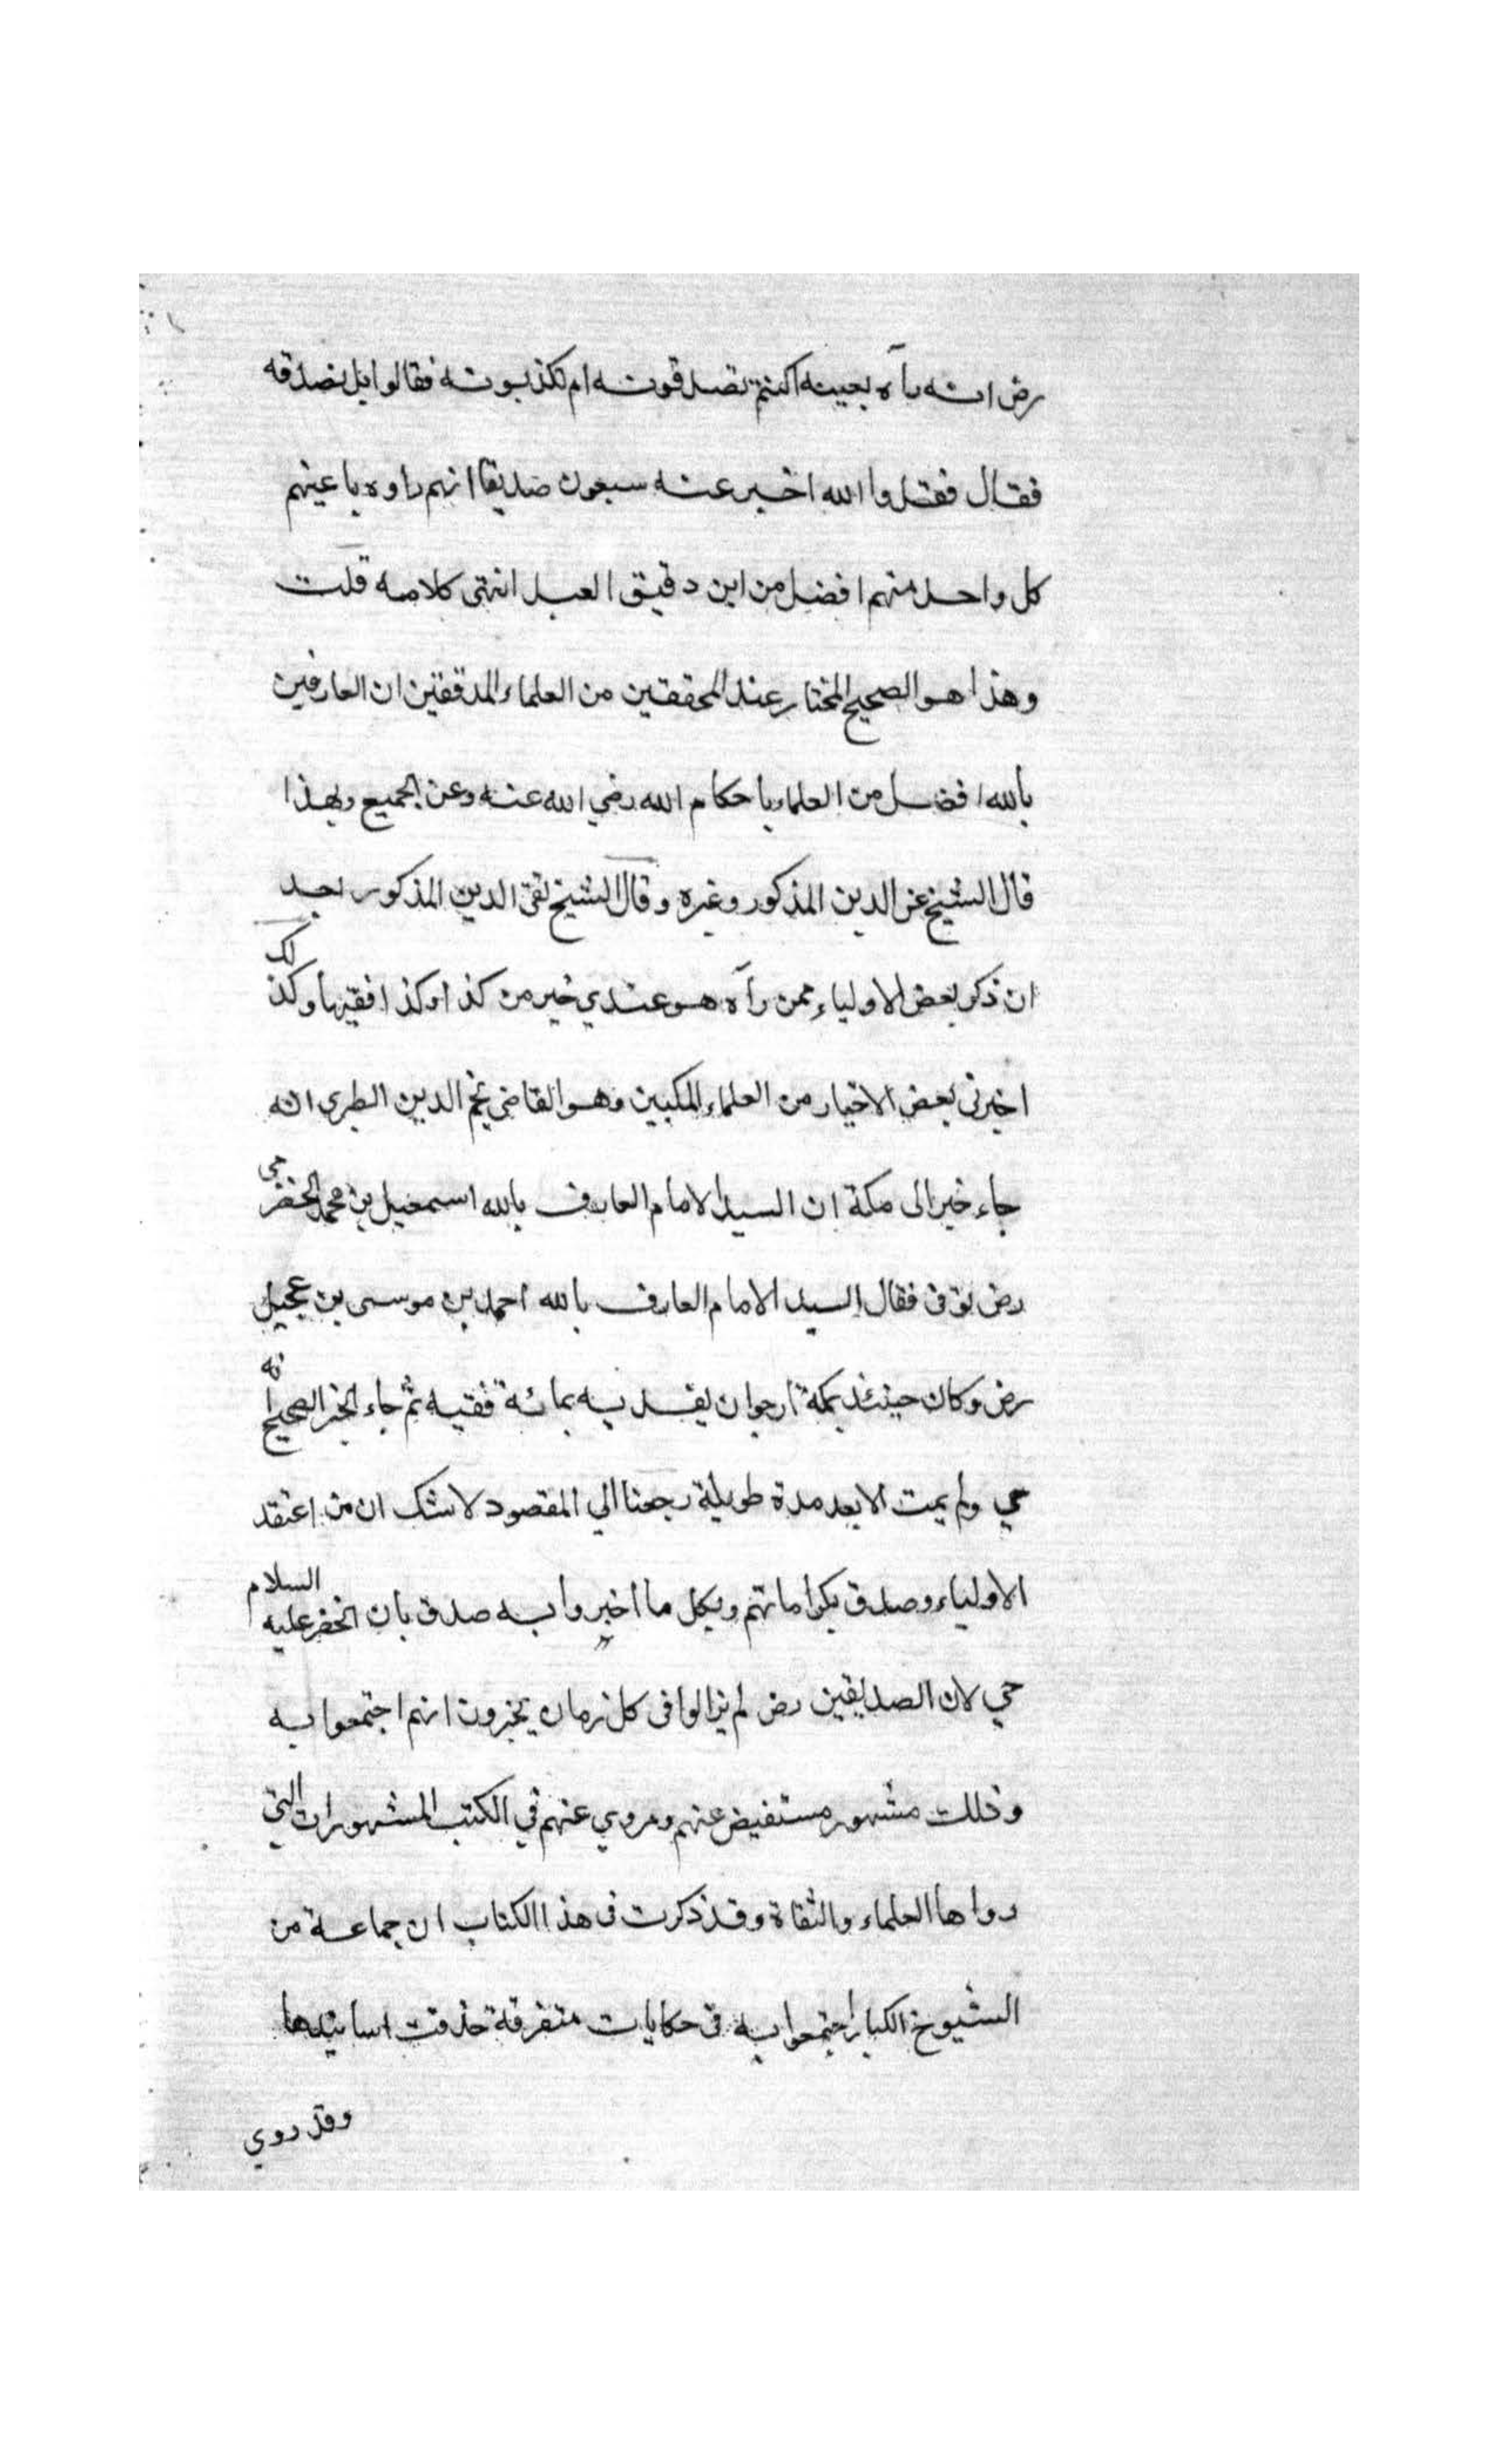 رض انه رآه بعينه اكنتم تصدقونه ام تكذبونه فقالوا بل نصدقه
فقال فقد والله اخبر عنه سبعون صديقا انهم راوه باعينهم
كل واحد منهم افضل من ابن دقيق العبد انتهى كلامه قلت
وهذا هو الصحيح المختار عند المحققين من العلماء المدققين ان العارفين
بالله افضل من العلماء باحكام الله رضي الله عنه وعن الجميع وبهذا
قال الشيخ عز الدين المذكور وغيره وقال الشيخ تقى الدين المذكور بعد
ان ذكر بعض الاولياء ممن رآه هو عندي خير من كذا وكذا فقيها وكذلك
اخبرنى بعض الاخيار من العلماء المكيين وهو القاضى نجم الدين الطبرى انه
جاء خبر الى مكة ان السيد الامام العارف بالله اسمعيل بن محمد الحضرمى
رض توفى فقال السيد الامام العارف بالله احمد بن موسى بن عجيل
رض وكان حينئذ بمكة ارجو ان يفديه بمائة فقيه ثم جاء الخبر الصحيح انه
حي ولم يمت الا بعد مدة طويلة رجعنا الي المقصود لا شك ان من اعتقد
الاولياء وصدق بكراماتهم وبكل ما اخبروا به صدق بان الخضر عليه السلام
حي لان الصديقين رض لم يزالوا فى كل زمان يخبرون انهم اجتمعوا به
وذلك مشهور مستفيض عنهم ومروي عنهم في الكتب المشهورات التي
رواها العلماء والثقاة وقد ذكرت فى هذا الكتاب ان جماعة من
الشيوخ الكبار اجتمعوا به فى حكايات متفرقة حذفت اسانيدها
وقد روي